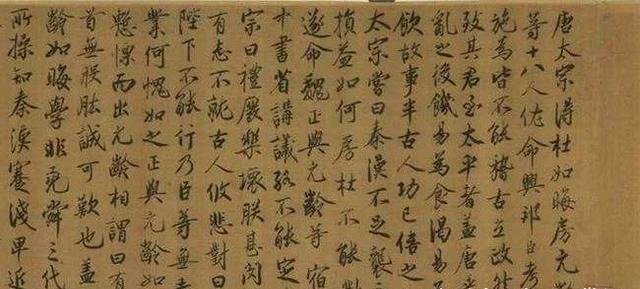 唐太宗得杜如晦房元
等十八人佐命興邦臣考
施為皆不能稽古立政然
致其君至太平者蓋唐
亂之後饑易為食渴易
飲故事半古人功已倍之
太宗嘗曰秦漢不足襲三
損益如何房杜不能對
遂命魏正與元齡等宿
中書省講議終不能定
宗曰禮廢樂壞朕甚閔
有志不就古人攸悲對曰
陛下不能行乃臣等無素
業何愧如之正與元齡如
慙慄而出元齡相謂曰有
首無股肱誠可歎也蓋
齡如晦學非堯舜三代
所操知秦漢蹇淺卑近